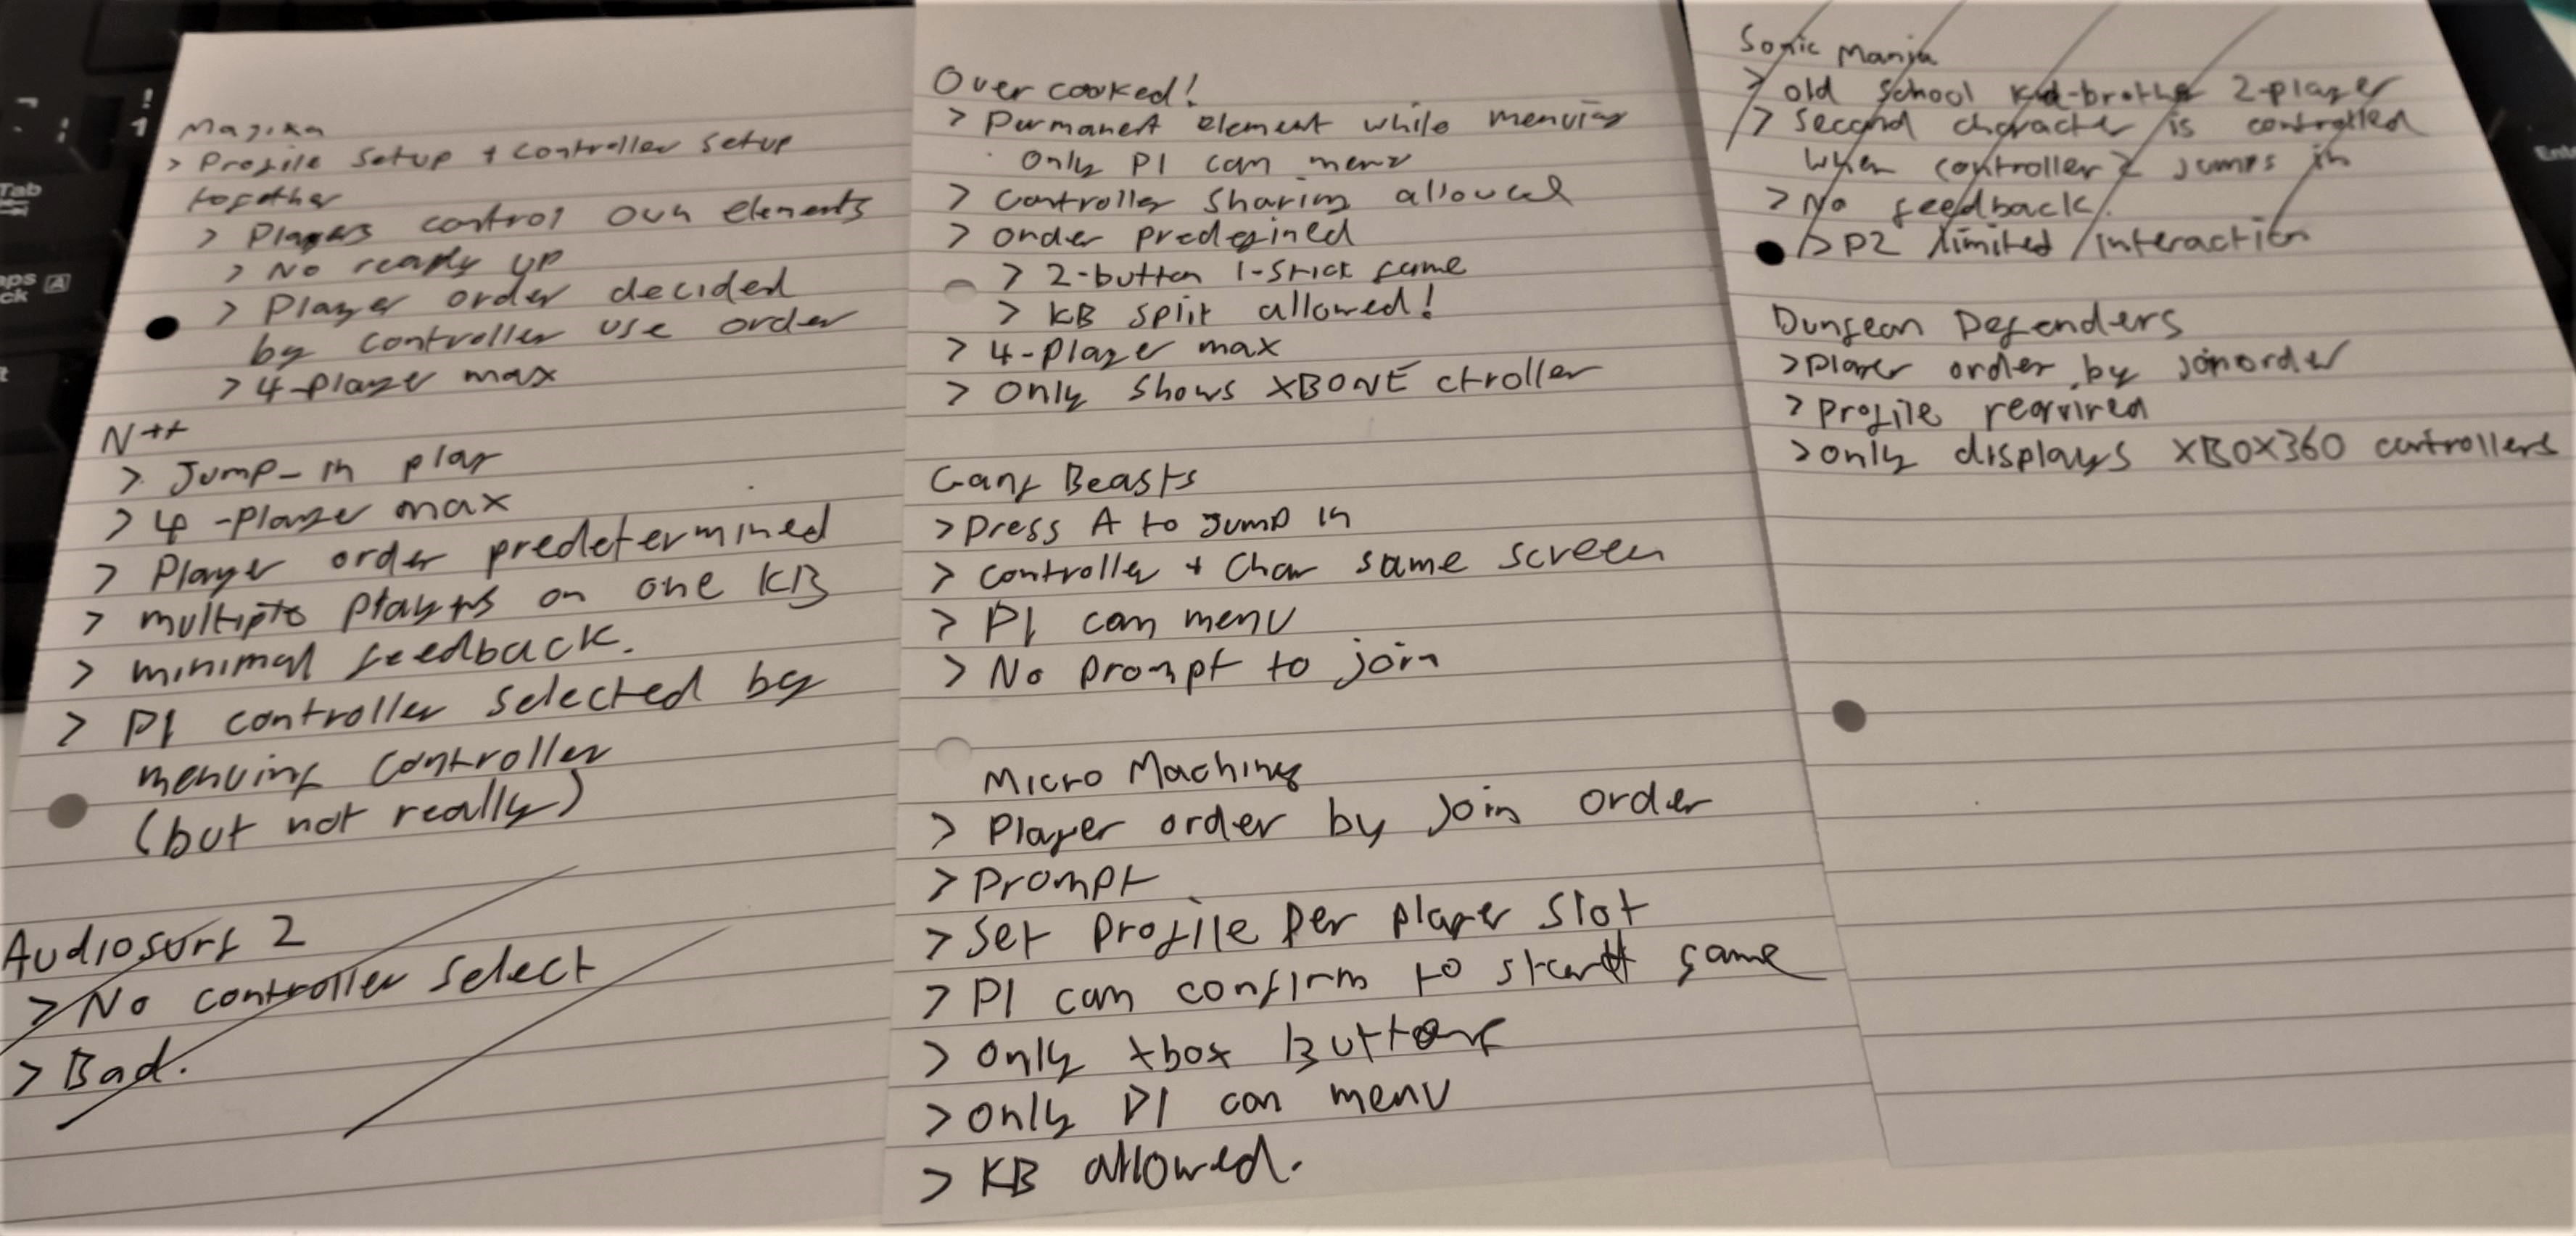 Magika
> Profile Setup + Controller Setup
together
> Players control own elements
> No ready up
> Player order decided
by controller use order
> 4-player max
N++
> Jump-in play
> 4-player max
> Player order predetermined
> multiple players on one KB
> minimal feedback.
> P1 controller selected by
menuing controller
(but not really)
Audiosurf 2
> No controller select
> Bad.
Overcooked!
> Permanent element while menuing
Only P1 can menu
> Controller Sharing allowed
> Order predefined
> 2-button 1-stick game
> KB split allowed!
> 4-player max
> Only shows XBONE ctroller
Gang Beasts
> Press A to jump in
> Controller + Char same screen
> P1 can menu
> No prompt to join
Micro Machines
> Player order by join order
> Prompt
> Set profile per player slot
> P1 can confirm to start game
> Only Xbox Buttons
> Only P1 can menu
> KB allowed.
Sonic Mania
> old school kid-brother 2-player
> Second character is controlled
when controller 2 jumps in
> No feedback.
> P2 limited interaction
Dungeon Defenders
> Player order by join order
> Profile required
> only displays XBOX360 controllers
Tab
Ent